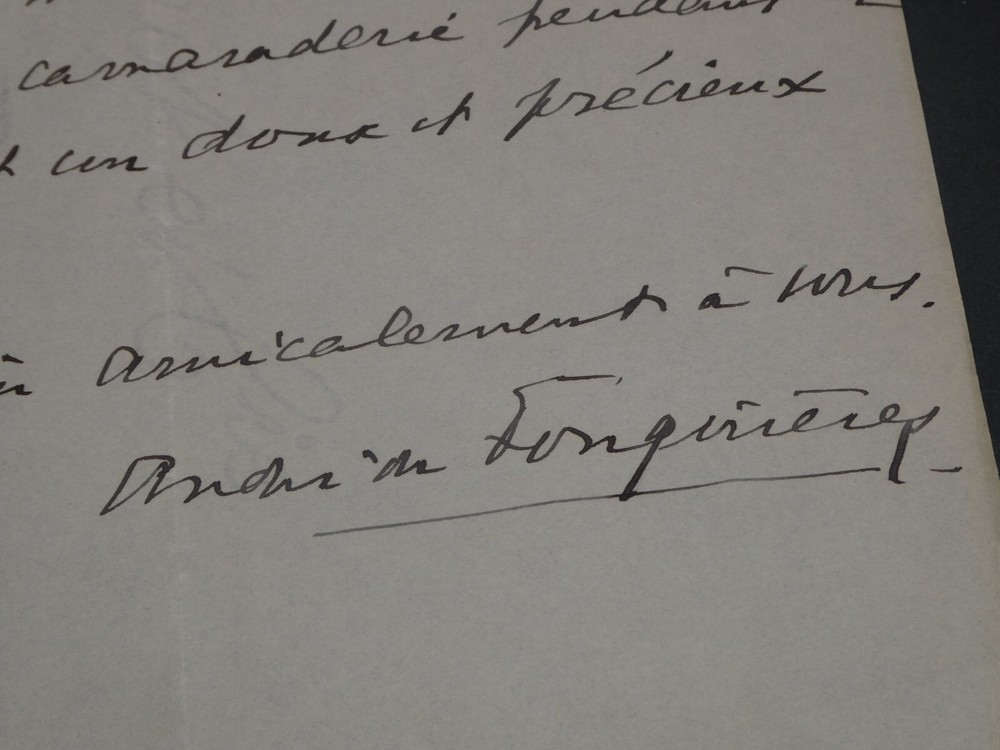 camaraderie pendant
un doux et précieux
amicalement à vous.
André de Fouquières